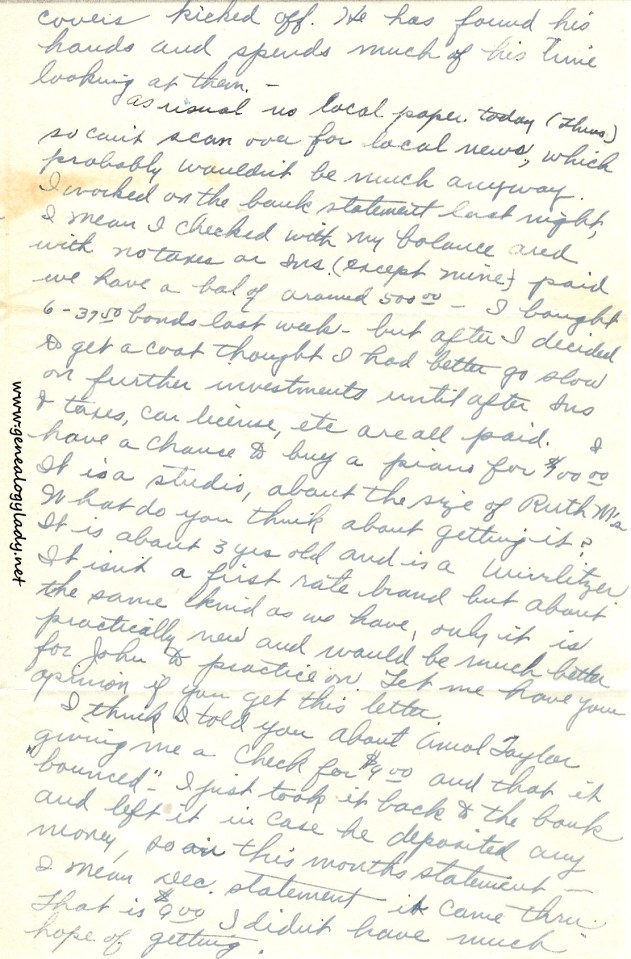 covers kicked off. He has found his
hands and spends much of his time
looking at them. –
As usual no local paper today (Thurs.)
so can't scan over for local news, which
probably wouldn't be much anyway.
I worked on the bank statement last night,
I mean I checked with my balance and
with no taxes or Ins. (except mine) paid
we have a bal of around 500 00 – I bought
6 – 37 50 bonds last week – but after I decided
to get a coat thought I had better go slow
on further investments until after Ins
& taxes, car license, etc are all paid. I
have a chance to buy a piano for $400 00
It is a studio, about the size of Ruth M's
What do you think about getting it?
It is about 3 yrs old and is a Wurlitzer
It isn't a first rate brand but about
the same kind as we have, only it is
practically new and would be much better
for John to practice on. Let me have your
opinion if you get this letter.
I think I told you about Amol Taylor
giving me a check for $9 00 and that it
"bounced" – I just took it back to the bank
and left it in case he deposited any
money, so on this months statement –
I mean Dec. statement it came thru.
That is $9 00 I didn't have much
hope of getting.
www.genealogylady.net